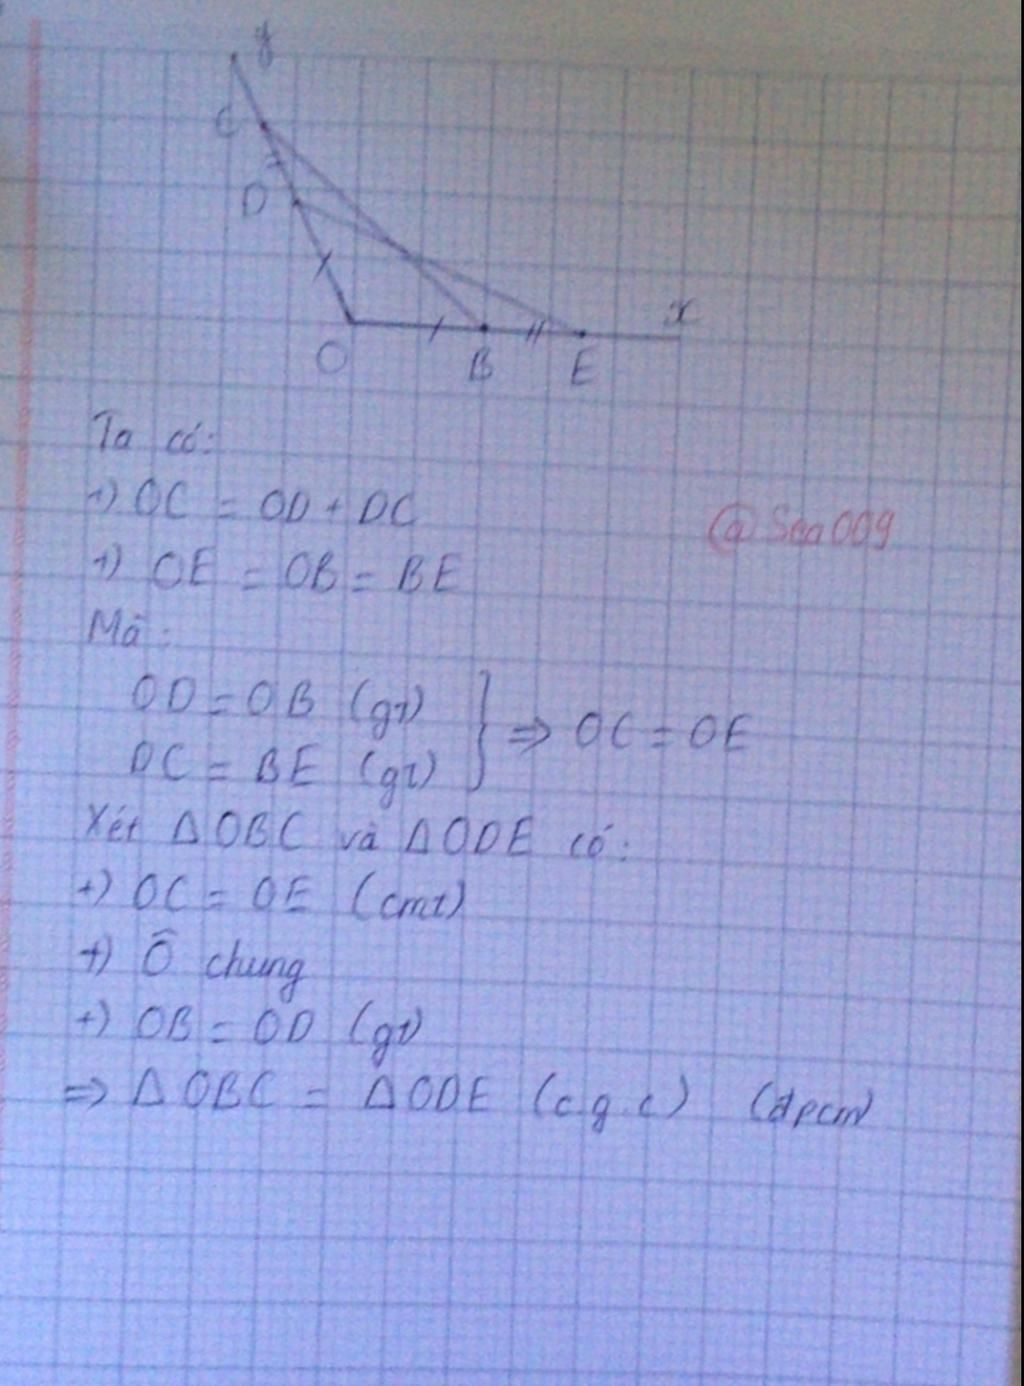 y
C
D
x
O B E
Ta có:
+) OC = OD + DC
@Sea009
+) OE = OB = BE
Mà:
OD = OB (gt)
DC = BE (gt)
} ⇒ OC = OE
Xét ΔOBC và ΔODE có:
+) OC = OE (cmt)
+) Ô chung
+) OB = OD (gt)
⇒ ΔOBC = ΔODE (c.g.c) (đpcm)